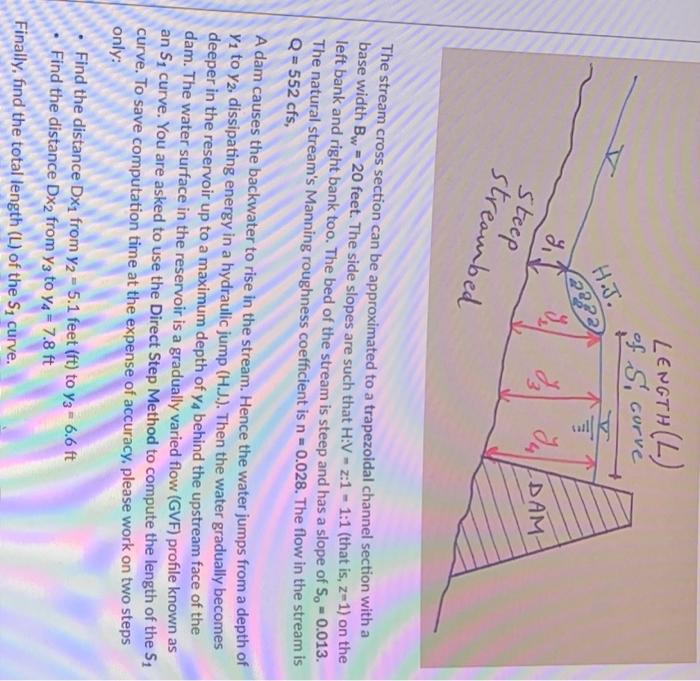 LENGTH(L)
of S₁ curve
H.J.
y₁
y₂
y₃
y₄
DAM
Steep
Streambed
The stream cross section can be approximated to a trapezoidal channel section with a
base width Bw = 20 feet. The side slopes are such that H:V = z:1 = 1:1 (that is, z=1) on the
left bank and right bank too. The bed of the stream is steep and has a slope of So = 0.013.
The natural stream's Manning roughness coefficient is n = 0.028. The flow in the stream is
Q = 552 cfs,
A dam causes the backwater to rise in the stream. Hence the water jumps from a depth of
y₁ to y₂, dissipating energy in a hydraulic jump (H.J.). Then the water gradually becomes
deeper in the reservoir up to a maximum depth of y₄ behind the upstream face of the
dam. The water surface in the reservoir is a gradually varied flow (GVF) profile known as
an S₁ curve. You are asked to use the Direct Step Method to compute the length of the S₁
curve. To save computation time at the expense of accuracy, please work on two steps
only:
• Find the distance Dx₁ from y₂ = 5.1 feet (ft) to y₃ = 6.6 ft
• Find the distance Dx₂ from y₃ to y₄ = 7.8 ft
Finally, find the total length (L) of the S₁ curve.